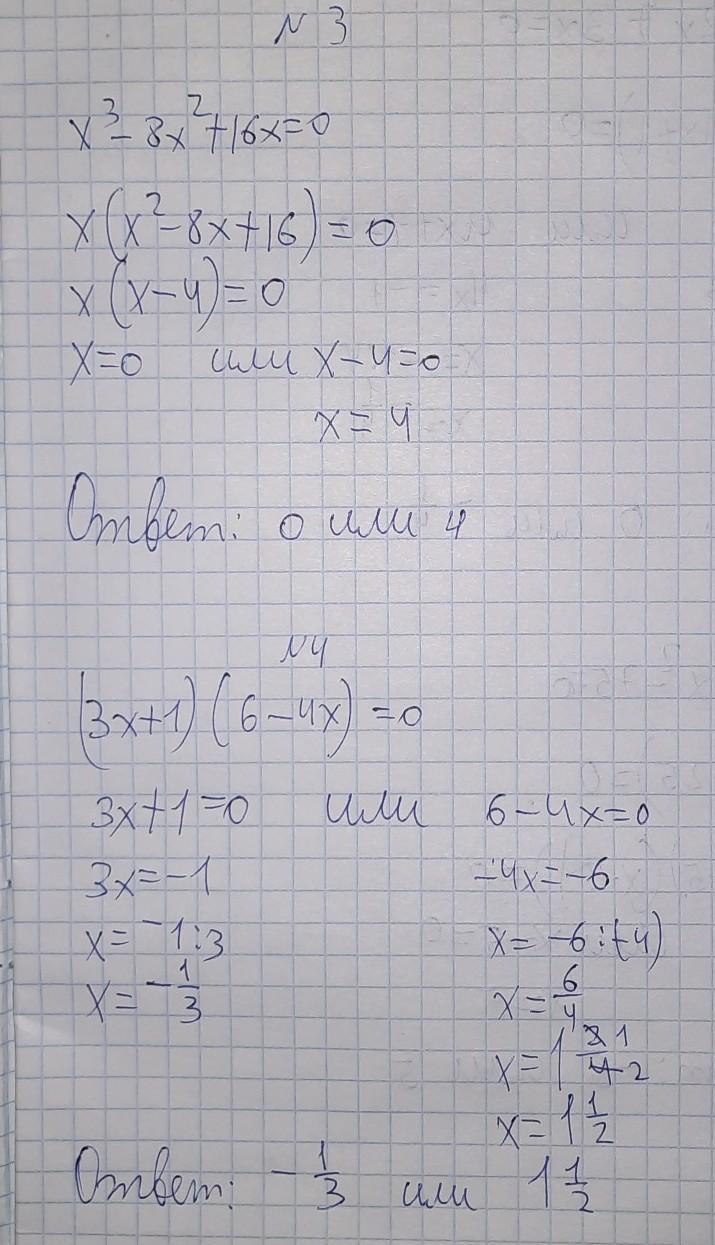 №3
x³-8x²+16x=0
x(x²-8x+16)=0
x(x-4)=0
x=0 или x-4=0
x=4
Ответ: 0 или 4
№4
(3x+1)(6-4x)=0
3x+1=0 или 6-4x=0
3x=-1 -4x=-6
x=-1:3 x=-6:(-4)
x=-1/3 x=6/4
x=1 2/4 1/2
x=1 1/2
Ответ: -1/3 или 1 1/2